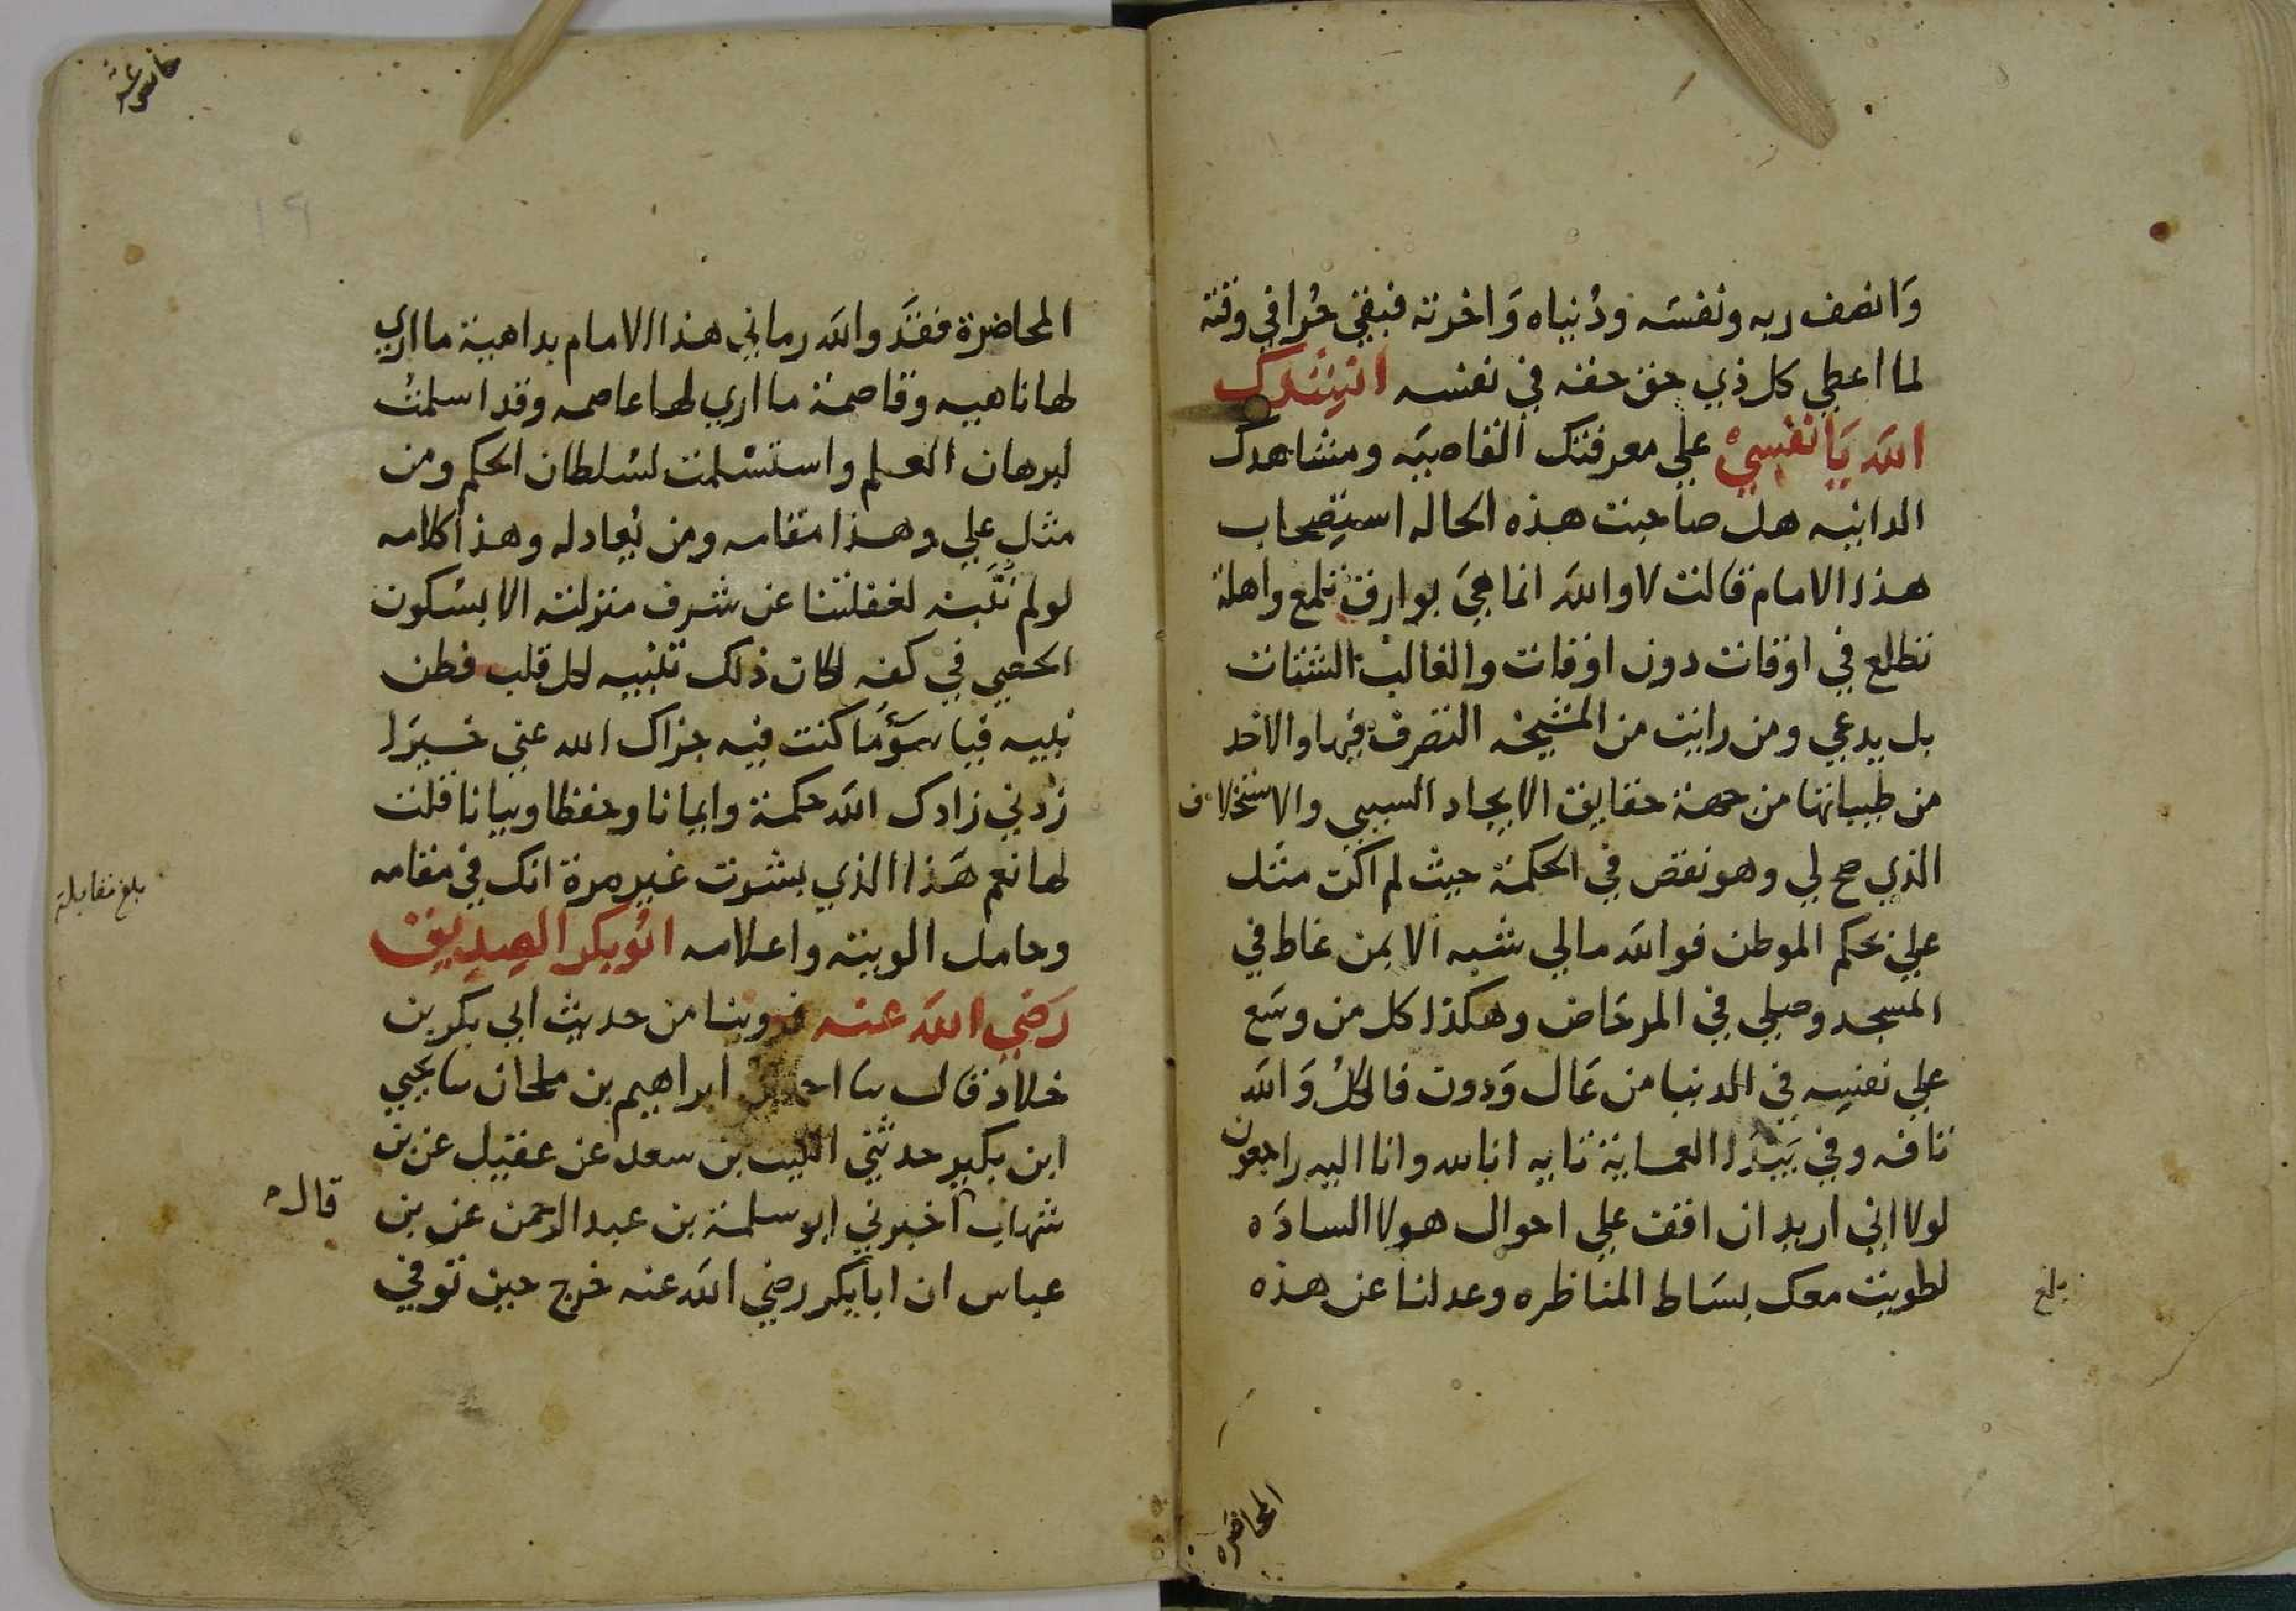 وَانصف ربه ونفسَه ودُنياه وَاخرته فبقي حُرا في وقته
لما اعطي كل ذي حق حقه في نفسه انشدك
الله يَا نفسي علي معرفتك القاصيَه ومشاهدك
الدانيه هل صاحبت هذه الحاله استصحاب
هذا الامام قالت لا والله انما هيَ بوارق تلمع واهلة
تطلع في اوقات دون اوقات والغالب الشتات
بل يدعي ومن رايت من المشيخه التصرف فيها والاخد
من طيباتها من جهة حقايق الايجاد السببي والاستخلاف
الذي صح لي وهو نقص في الحكمة حيث لم اكن مثل
علي بحكم الموطن فوالله مالي شبه الا بمن غاط في
المسجد وصلي في المرحَاض وهكذا كل من وسَع
علي نفسه في الدنيا من عَال وَدون فالكلُ وَالله
تافه وفي بَيْدَا العماية تايه انا لله وانا اليه راجعون
لولا اني اريد ان اقف علي احوال هولا السادَه
لطويت معك بسَاط المناظره وعدلنا عن هذه
بلغ
المحاضره
خامسة عشر
١٩
المحاضرة فقَد والله رماني هذا الامام بداهية ما اري
لها ناهيه وقاصمة ما اري لها عاصمه وقد اسلمتُ
لبرهان العلم واستسْلمت لسُلطان الحكم ومن
مثل علي وهذا مقامه ومن يُعادله وهذا كلامه
لو لم نتَبه لغفلتنا عن شرف منزلته الا بسْكون
الحصي في كفه لكان ذلك تنبيه لكل قلب فطن
نبيه فيا سؤَما كنت فيه جزاك الله عني خيرَا
زدني زادك الله حكمة وايمانا وحفظا وبيانا قلت
لها نعم هَذا الذي بشرت غير مرة انك في مقامه
وحامل الويته واعلامه ابُو بكر الصِديق
رَضي الله عنه فروينا من حديث ابي بكر بن
خلاد قال نا احمد بن ابراهيم بن ملحان نا يحيي
ابن بكير حدثني الليث بن سعد عن عقيل عن بن
شهاب اخبرني ابو سلمة بن عبد الرحمن عن بن
عباس ان ابا بكر رضي الله عنه خرج حين توفي
بلغ مقابلة
قال